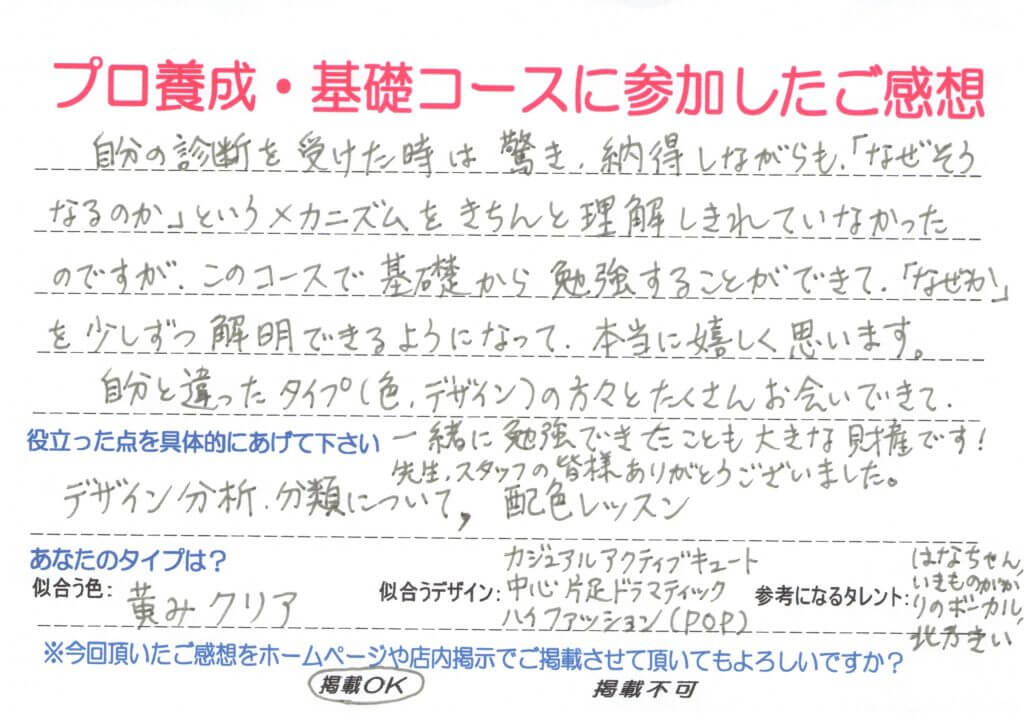 プロ養成・基礎コースに参加したご感想
自分の診断を受けた時は驚き、納得しながらも、「なぜそう
なるのか」というメカニズムをきちんと理解しきれていなかった
のですが、このコースで基礎から勉強することができて、「なぜか」
を少しずつ解明できるようになって、本当に嬉しく思います。
自分と違ったタイプ(色、デザイン)の方々とたくさんお会いできて、
一緒に勉強できたことも大きな財産です!
先生、スタッフの皆様ありがとうございました。
役立った点を具体的にあげて下さい
デザイン分析、分類について, 配色レッスン
あなたのタイプは?
似合う色: 黄みクリア
似合うデザイン: カジュアルアクティブキュート
中心片足ドラマティック
ハイファッション(POP)
参考になるタレント: はなちゃん,
いきものがか
りのボーカル,
北乃きい
※今回頂いたご感想をホームページや店内掲示でご掲載させて頂いてもよろしいですか?
掲載OK 掲載不可